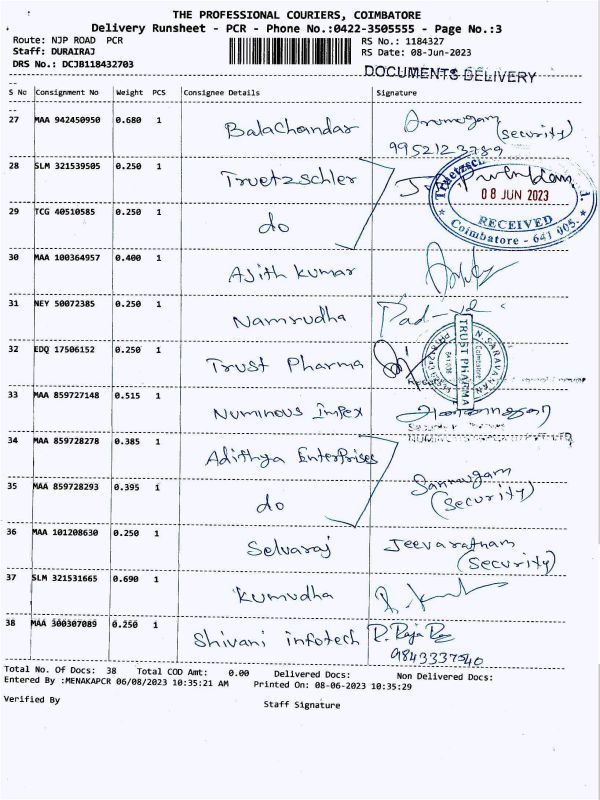 THE PROFESSIONAL COURIERS, COIMBATORE
Delivery Runsheet - PCR - Phone No.:0422-3505555 - Page No.:3
Route: NJP ROAD PCR RS No.: 1184327
Staff: DURAIRAJ RS Date: 08-Jun-2023
DRS No.: DCJB118432703 DOCUMENTS DELIVERY
S No Consignment No Weight PCS Consignee Details Signature
27 MAA 942450950 0.680 1 Balachandar Arumugam (security)
9952123789
28 SLM 321539505 0.250 1 Truetzschler
08 JUN 2023
29 TCG 40510585 0.250 1 do
RECEIVED
Coimbatore - 641 005.
30 MAA 100364957 0.400 1 Ajith kumar
31 NEY 50072385 0.250 1 Namrudha
32 EDQ 17506152 0.250 1 Trust Pharma
TRUST PHARMA
N SARAVANAN
33 MAA 859727148 0.515 1 Numinous Impex
34 MAA 859728278 0.385 1 Adithya Enterprises
35 MAA 859728293 0.395 1 do Sanmugam
(Security)
36 MAA 101208630 0.250 1 Selvaraj Jeevaratnam
(Security)
37 SLM 321531665 0.690 1 Kumudha
38 MAA 300307089 0.250 1 Shivani infotech R. Raja
9843337540
Total No. Of Docs: 38 Total COD Amt: 0.00 Delivered Docs: Non Delivered Docs:
Entered By :MENAKAPCR 06/08/2023 10:35:21 AM Printed On: 08-06-2023 10:35:29
Verified By Staff Signature